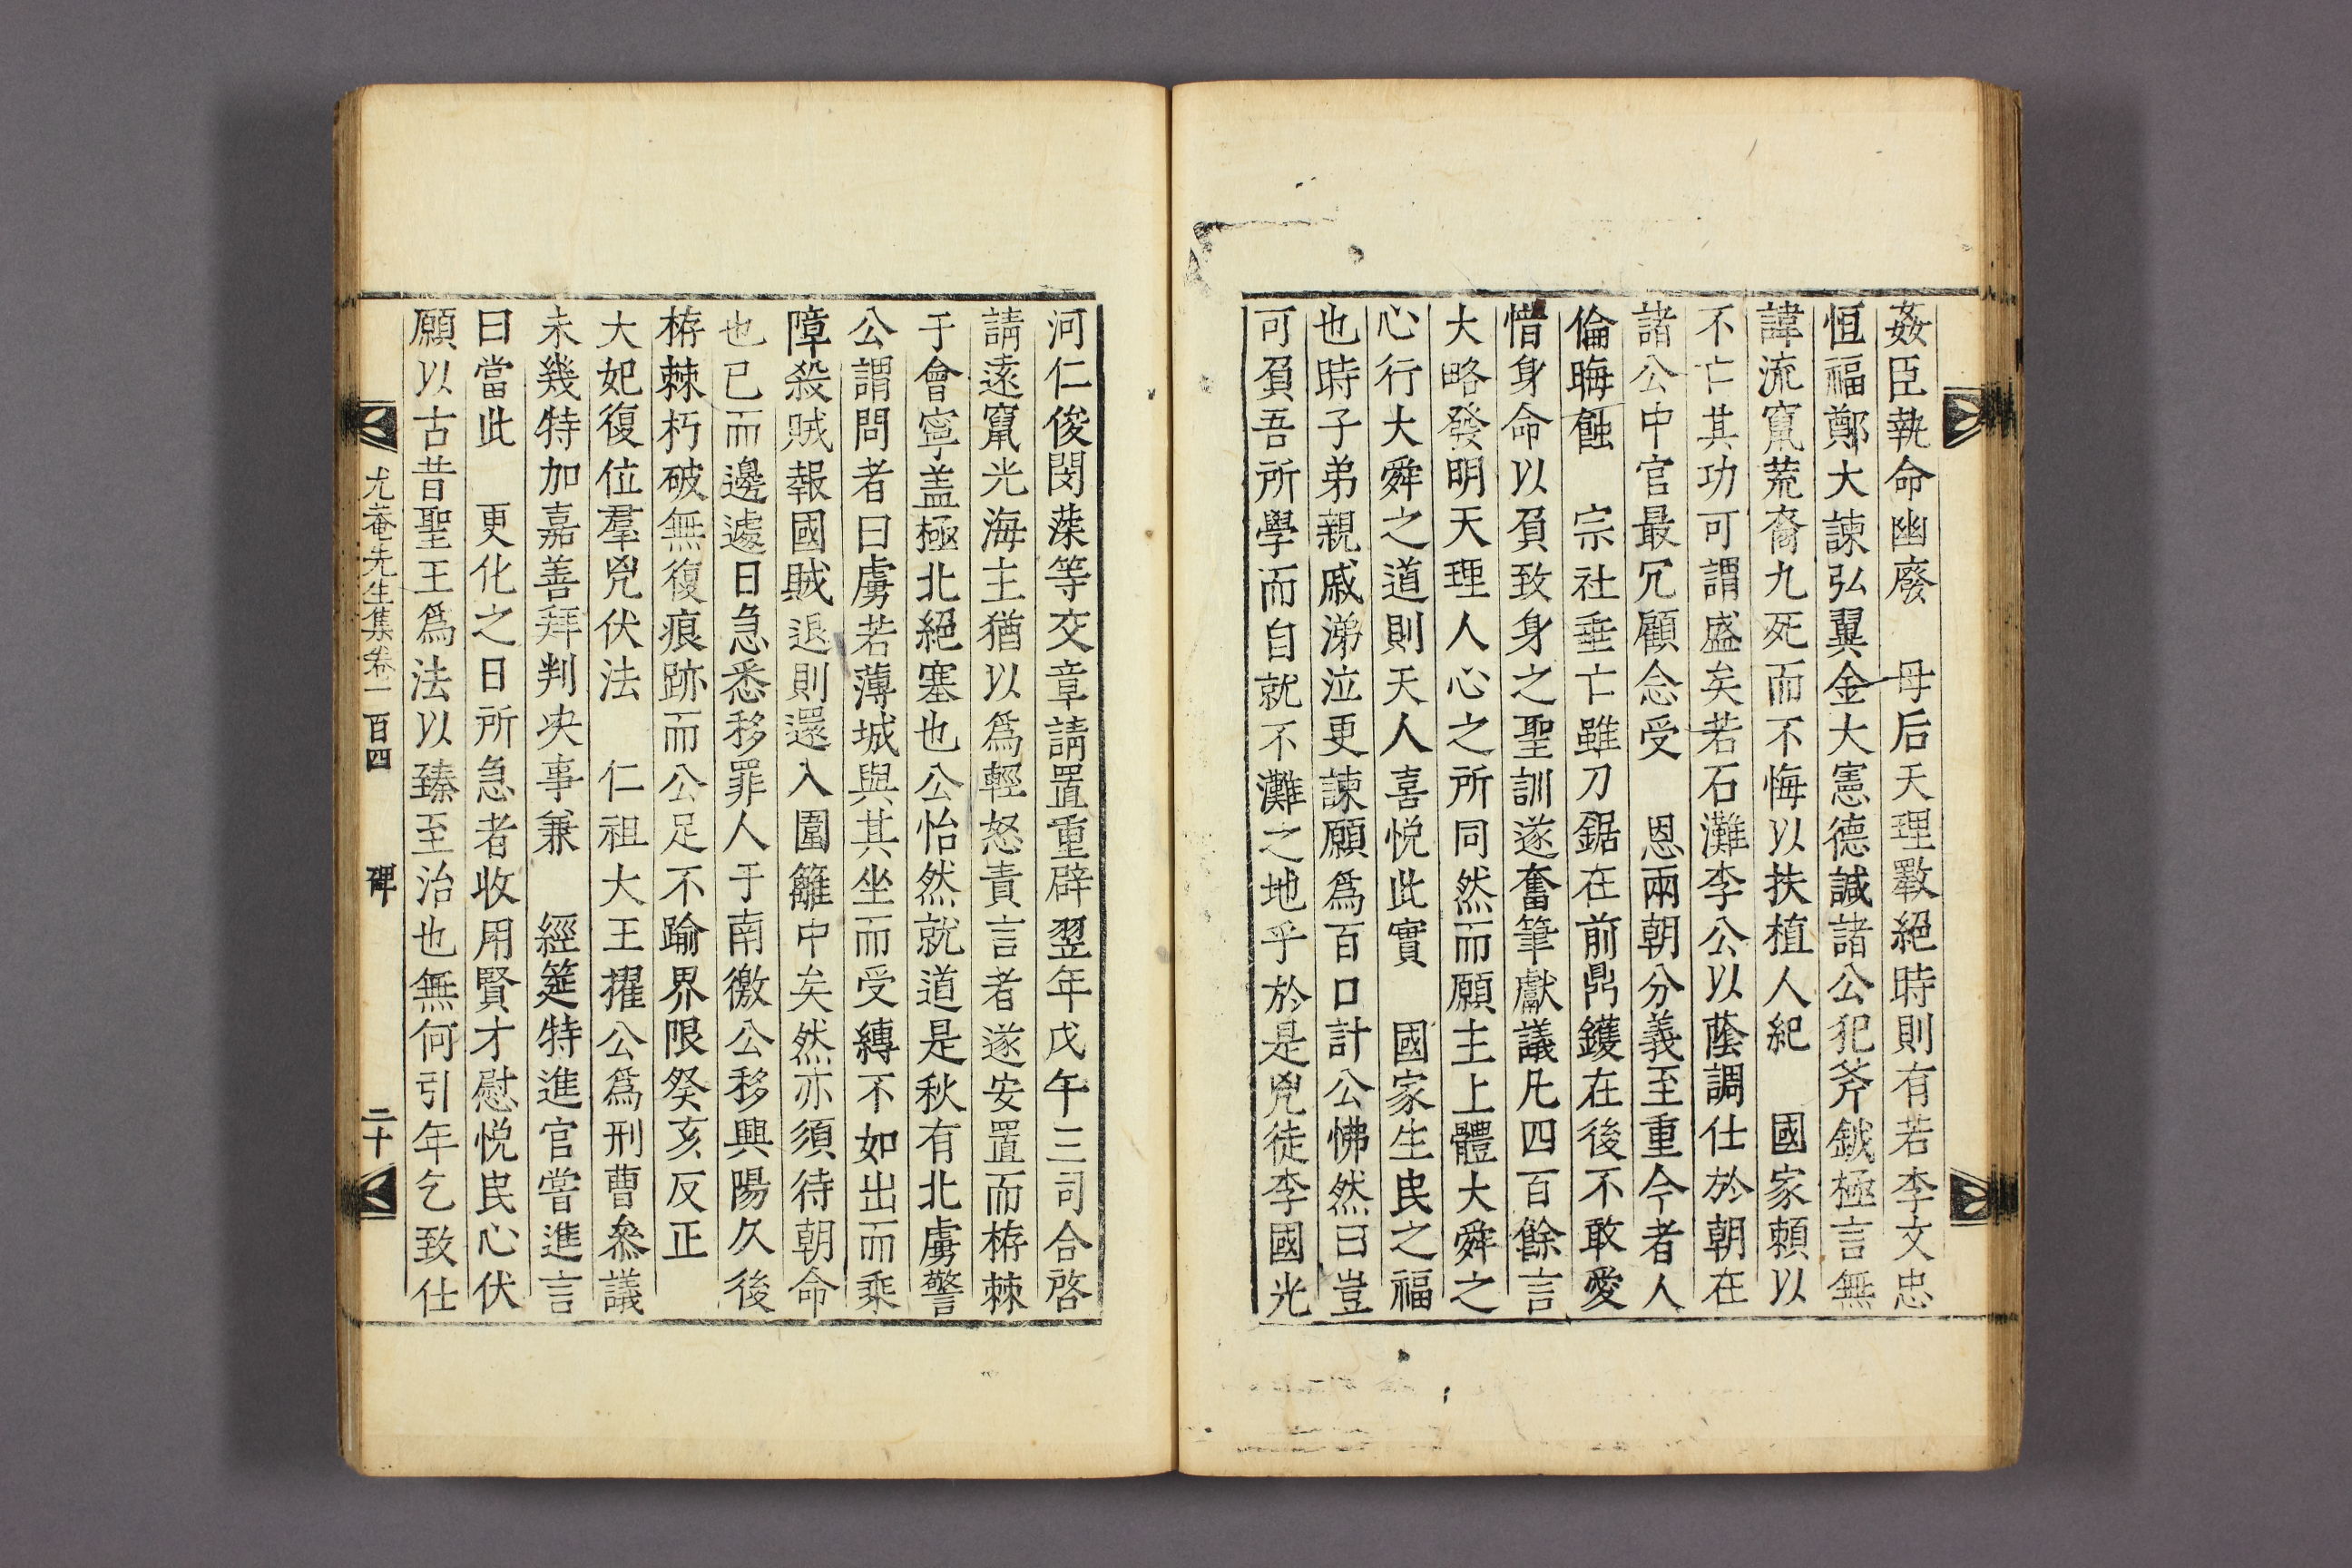 姦臣執命幽廢　母后天理斁絕時則有若李文忠
恒福鄭大諫弘翼金大憲德諴諸公犯斧鉞極言無
諱流竄荒裔九死而不悔以扶植人紀　國家賴以
不亡其功可謂盛矣若石灘李公以蔭調仕於朝在
諸公中官最冗顧念受　恩兩朝分義至重今者人
倫晦蝕　宗社垂亡雖刀鋸在前鼎鑊在後不敢愛
惜身命以負致身之聖訓遂奮筆獻議凡四百餘言
大略發明天理人心之所同然而願主上體大舜之
心行大舜之道則天人喜悅此實　國家生民之福
也時子弟親戚涕泣更諫願爲百口計公怫然曰豈
可負吾所學而自就不灘之地乎於是兇徒李國光
河仁俊閔蘂等交章請置重辟翌年戊午三司合啓
請遠竄光海主猶以爲輕怒責言者遂安置而栫棘
于會寧盖極北絕塞也公怡然就道是秋有北虜警
公謂問者曰虜若薄城與其坐而受縛不如出而乘
障殺賊報國賊退則還入圍籬中矣然亦須待朝命
也已而邊遽日急悉移罪人于南徼公移興陽久後
栫棘朽破無復痕跡而公足不踰界限癸亥反正
大妃復位羣兇伏法　仁祖大王擢公爲刑曹叅議
未幾特加嘉善拜判決事兼　經筵特進官嘗進言
曰當此　更化之日所急者收用賢才慰悅民心伏
願以古昔聖王爲法以臻至治也無何引年乞致仕
尤菴先生集卷一百四　碑　二十